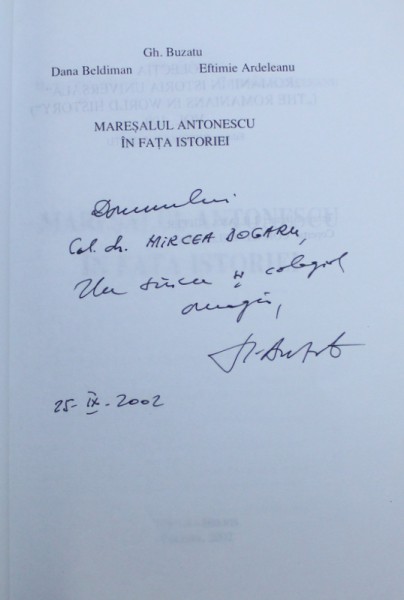 Gh. Buzatu
Dana Beldiman Eftimie Ardeleanu
MAREȘALUL ANTONESCU
ÎN FAȚA ISTORIEI
Domnului
Col. dr. MIRCEA DOGARU,
Un și colegial
omagiu,
25-IX-2002